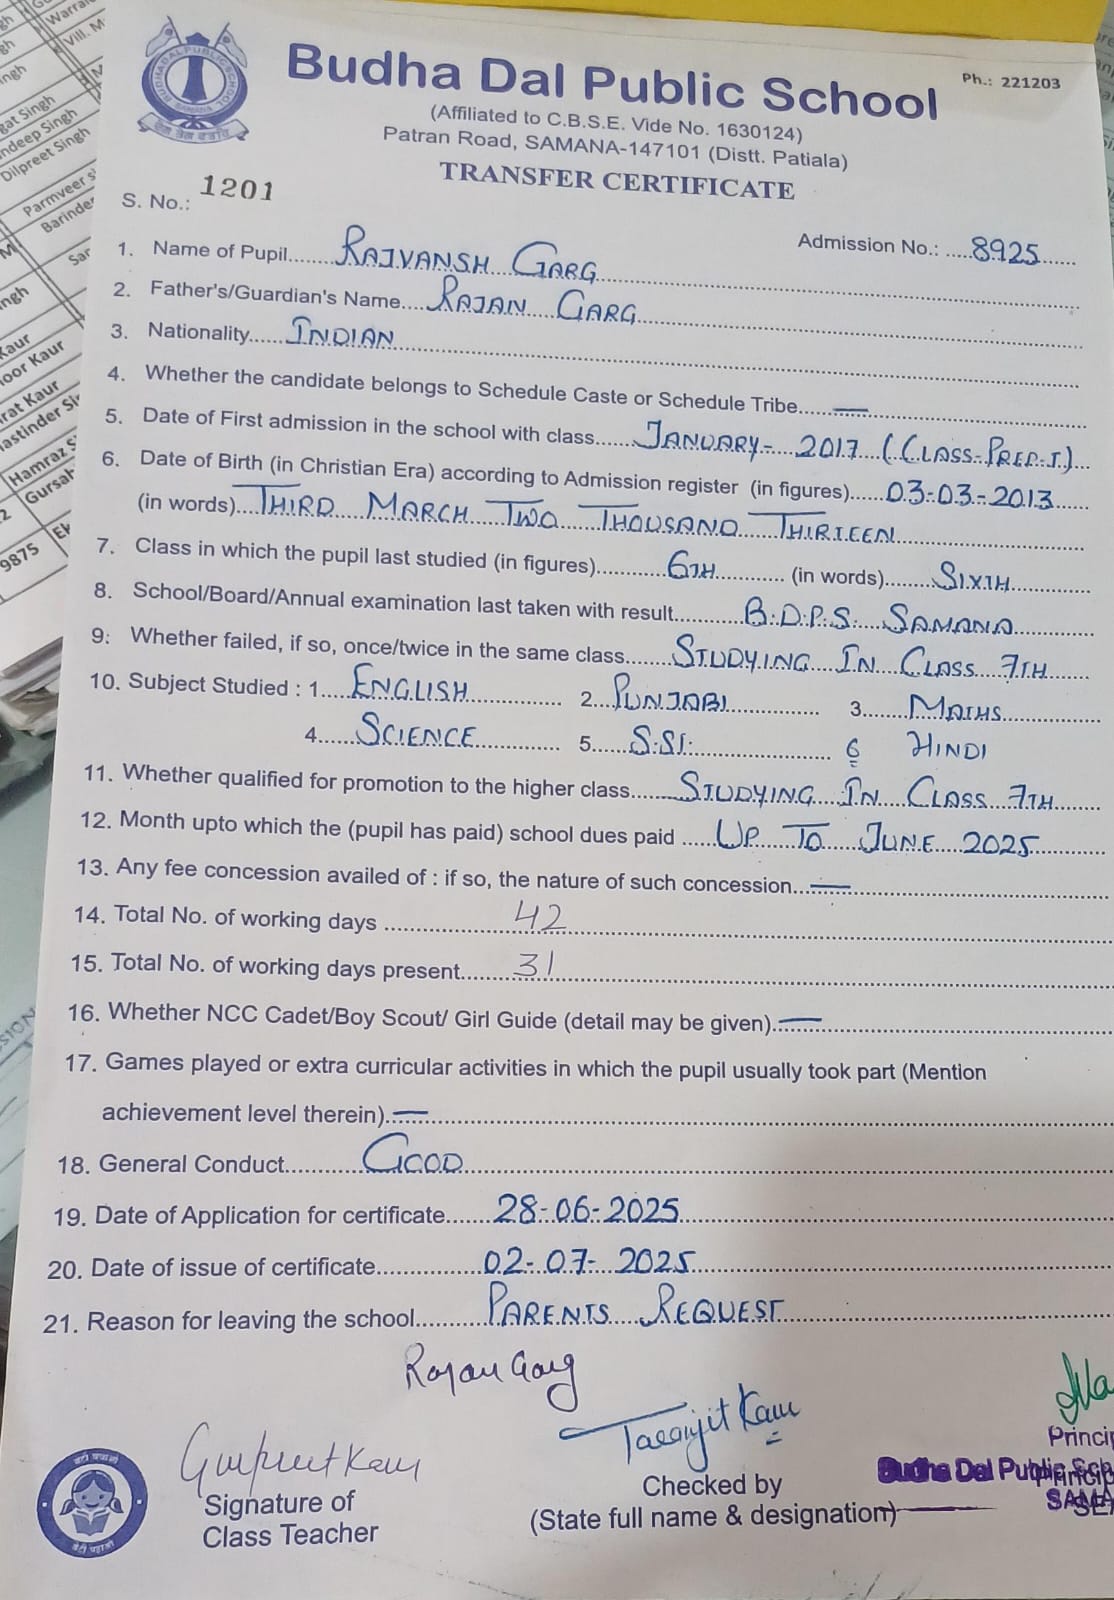 Budha Dal Public School
Ph.: 221203
(Affiliated to C.B.S.E. Vide No. 1630124)
Patran Road, SAMANA-147101 (Distt. Patiala)
TRANSFER CERTIFICATE
S. No.: 1201
Admission No.: 8925
1. Name of Pupil RAJVANSH GARG
2. Father's/Guardian's Name RAJAN GARG
3. Nationality INDIAN
4. Whether the candidate belongs to Schedule Caste or Schedule Tribe —
5. Date of First admission in the school with class JANUARY- 2017 (CLASS-PREP-I)
6. Date of Birth (in Christian Era) according to Admission register (in figures) 03-03-2013
(in words) THIRD MARCH TWO THOUSAND THIRTEEN
7. Class in which the pupil last studied (in figures) 6TH (in words) SIXTH
8. School/Board/Annual examination last taken with result B.D.P.S. SAMANA
9. Whether failed, if so, once/twice in the same class STUDYING IN CLASS 7TH
10. Subject Studied : 1. ENGLISH 2. PUNJABI 3. MATHS
4. SCIENCE 5. S.ST. 6 HINDI
11. Whether qualified for promotion to the higher class STUDYING IN CLASS 7TH
12. Month upto which the (pupil has paid) school dues paid UP TO JUNE 2025
13. Any fee concession availed of : if so, the nature of such concession —
14. Total No. of working days 42
15. Total No. of working days present 31
16. Whether NCC Cadet/Boy Scout/ Girl Guide (detail may be given) —
17. Games played or extra curricular activities in which the pupil usually took part (Mention
achievement level therein) —
18. General Conduct GOOD
19. Date of Application for certificate 28-06-2025
20. Date of issue of certificate 02-07-2025
21. Reason for leaving the school PARENTS REQUEST
Rajan Garg
Gurpreet Kaur
Taranjit Kaur
Signature of
Class Teacher
Checked by
(State full name & designation)
Princip
Budha Dal Public Sch
SAMA
Parmveer
Hamraz
9875
Dilpreet Singh